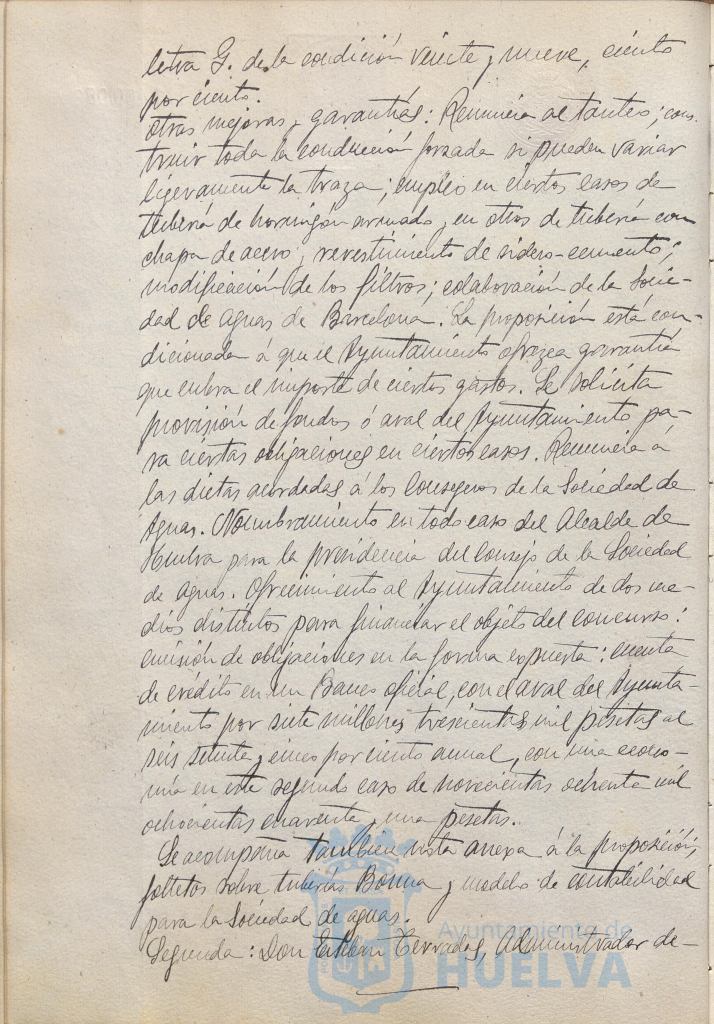 letra G. de la condición veinte y nueve, ciento
por ciento.
Otras mejoras y garantías: Renuncia al tanteo; cons-
truir toda la conducción forzada si pueden variar
ligeramente la traza; empleo en ciertos casos de
tubería de hormigón armado y en otros de tubería con
chapa de acero y revestimiento de sidero-cemento;
modificación de los filtros; colaboración de la Socie-
dad de Aguas de Barcelona. La proposición está con-
dicionada á que el Ayuntamiento ofrezca garantía
que cubra el importe de ciertos gastos. Se solicita
provisión de fondos ó aval del Ayuntamiento pa-
ra ciertas obligaciones en ciertos casos. Renuncia á
las dietas acordadas á los Consegeros de la Sociedad de
Aguas. Nombramiento en todo caso del Alcalde de
Huelva para la presidencia del Consejo de la Sociedad
de aguas. Ofrecimiento al Ayuntamiento de dos me-
dios distintos para financiar el objeto del concurso:
emisión de obligaciones en la forma expuesta: cuenta
de crédito en un Banco oficial, con el aval del Ayunta-
miento por siete millones trescientas mil pesetas al
seis setenta y cinco por ciento anual, con una econo-
mía en este segundo caso de novecientas ochenta mil
ochocientas cuarenta y una pesetas.
Se acompaña también nota anexa á la proposición,
folletos sobre tuberías Bonna y modelo de contabilidad
para la Sociedad de aguas.
Segunda: Don Esteban Terradas, Administrador de-
Ayuntamiento de
HUELVA